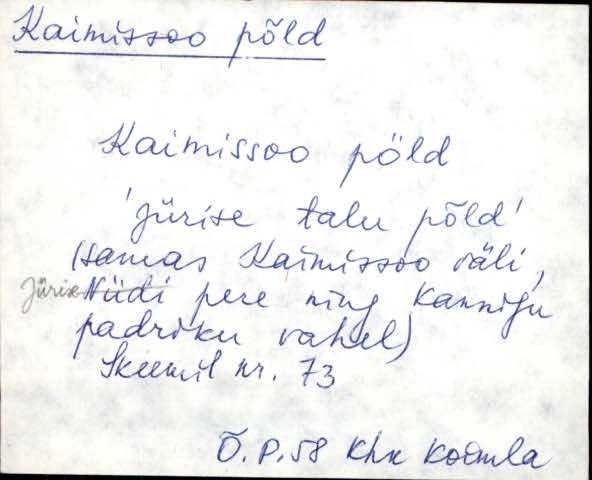 Kaimissoo põld
Kaimissoo põld
'Jürise talu põld'
(samas Kaimissoo väli,
Jürise Nüdi pere ning Kannigu
padriku vahel)
Skeemil nr. 73
Õ.P.58 Khk Koimla